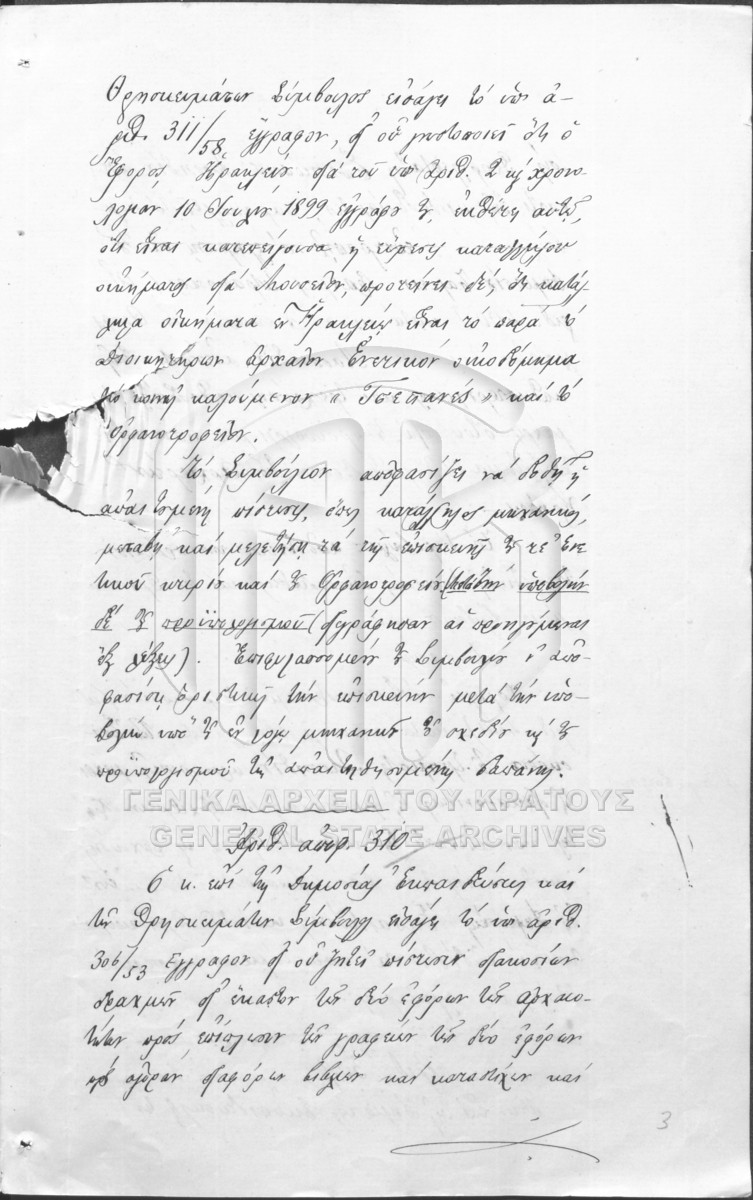 Θρησκευμάτων Σύμβουλος εἰσάγει τό ὑπ' ἀ-
ριθ. 311/58 ἔγγραφον, δι' οὗ γνωστοποιεῖ ὅτι ὁ
Ἔφορος Ἡρακλείου διά τοῦ ὑπ' ἀριθ. 2 καί χρονο-
λογίαν 10 Ἰουλίου 1899 ἐγγράφου του, ἐκθέτει αὐτῷ,
ὅτι εἶναι κατεπείγουσα ἡ εὕρεσις καταλλήλου
οἰκήματος διά Μουσεῖον, προτείνει δέ, ὅτι κατάλ-
ληλα οἰκήματα ἐν Ἡρακλείῳ εἶναι τό παρά τό
Διοικητήριον ἀρχαῖον Ἑνετικόν οἰκοδόμημα
τό κοινῶς καλούμενον "Τσεπανές" καί τό
Ὀρφανοτροφεῖον.
Τό Συμβούλιον ἀποφασίζει νά δοθῇ ἡ
ἀπαιτουμένη πίστωσις, ὅπως κατάλληλος μηχανικός,
μεταβῇ καί μελετήσῃ τά τῆς ἐπισκευῆς τοῦ τε Ἑνε-
τικοῦ κτιρίου καί τοῦ Ὀρφανοτροφείου ὑποβολήν
δέ τοῦ προϋπολογισμοῦ (διεγράφησαν αἱ προηγούμεναι
ἕξ λέξεις). Ἐπιφυλασσομένου τοῦ Συμβουλίου ν' ἀπο-
φασίσῃ ὁριστικῶς τήν ἐπισκευήν μετά τήν ὑπο-
βολήν ὑπό τοῦ ἐν λόγῳ μηχανικοῦ τοῦ σχεδίου καί τοῦ
προϋπολογισμοῦ τῆς ἀπαιτηθησομένης δαπάνης.
Ἀριθ. ἀποφ. 310
Ὁ κ. ἐπί τῆς Δημοσίας Ἐκπαιδεύσεως καί
τῶν Θρησκευμάτων Σύμβουλος εἰσάγει τό ὑπ' ἀριθ.
306/53 ἔγγραφον δι' οὗ ζητεῖ πίστωσιν διακοσίων
δραχμῶν δι' ἕκαστον τῶν δύο ἐφόρων τῶν ἀρχαιο-
τήτων πρός ἐπίπλωσιν τῶν γραφείων τῶν δύο ἐφόρων
πρός ἀγοράν διαφόρων βιβλίων καί καταστίχων καί
3
ΓΕΝΙΚΑ ΑΡΧΕΙΑ ΤΟΥ ΚΡΑΤΟΥΣ
GENERAL STATE ARCHIVES